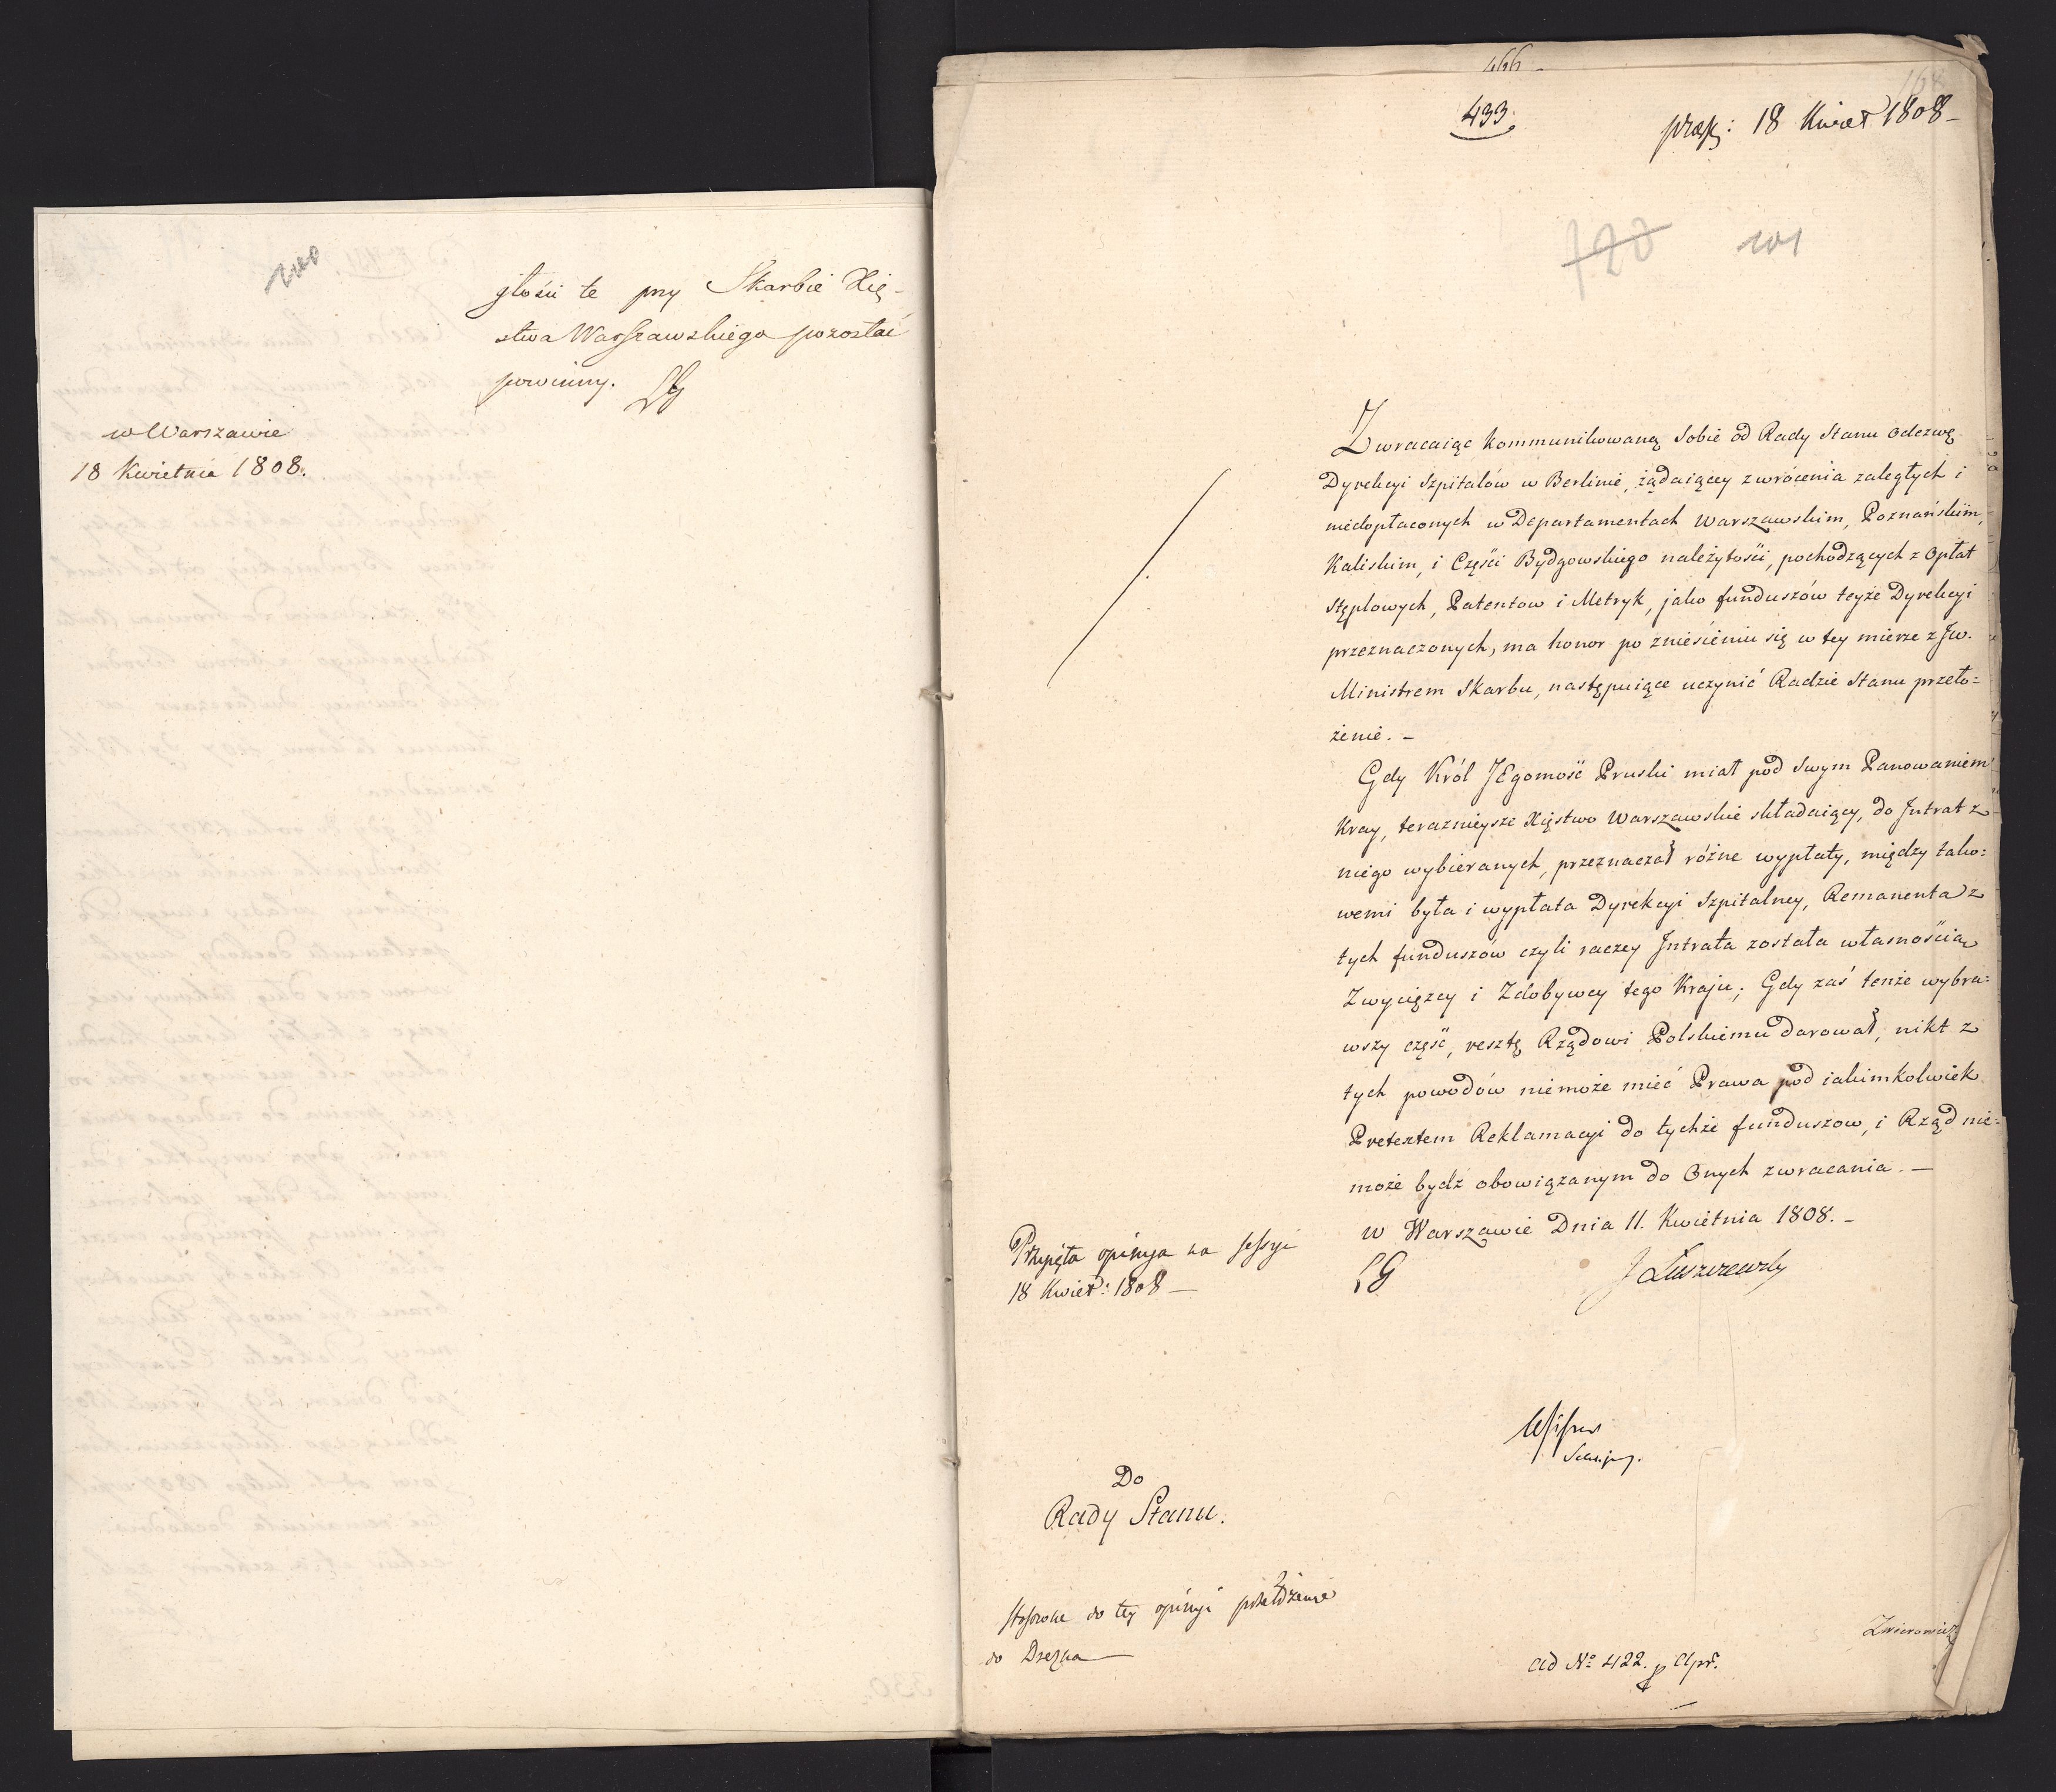 200
głości te przy Skarbie Xię-
stwa Warszawskiego pozostać
powinny. LG
w Warszawie
18 Kwietnia 1808.
466
433.
præs: 18 Kwiet 1808
720 201
Zwracaiąc kommunikowaną Sobie od Rady Stanu Odezwę
Dyrekcyi Szpitalów w Berlinie, żądaiącey zwrócenia zaległych i
niedopłaconych w Departamentach Warszawskim, Poznańskim,
Kaliskim, i Części Bydgowskiego należytości, pochodzących z Opłat
Stęplowych, Patentow i Metryk, jako funduszów teyże Dyrekcyi
przeznaczonych, ma honor po zniesieniu się w tey mierze z Jw.
Ministrem Skarbu, następuiące uczynić Radzie Stanu przeło=
żenie. –
Gdy Król JEgomość Pruski miał pod Swym Panowaniem
Kray, teraznieysze Xięstwo Warszawskie składaiący, do Jntrat z
niego wybieranych, przeznaczał różne wypłaty, między tako=
wemi była i wypłata Dyrekcyi Szpitalney, Remanenta z
tych funduszów czyli raczey Jntrata została własnością
Zwycięzcy i Zdobywcy tego Kraju; Gdy zaś tenże wybra=
wszy część, resztę Rządowi Polskiemu darował, nikt z
tych powodów niemoże mieć Prawa pod iakimkolwiek
Pretextem Reklamacyi do tychże funduszow, i Rząd nie=
może bydź obowiązanym do Onych zwracania. –
w Warszawie Dnia 11. Kwietnia 1808. –
LG J Łuszczewski
Przyięta opinija na sessyi
18 Kwiet: 1808 –
Do
Rady Stanu.
Stosowne do tey opinyi przełożenie
do Drezna
Zwierowicz
ad No 422. p Apr.